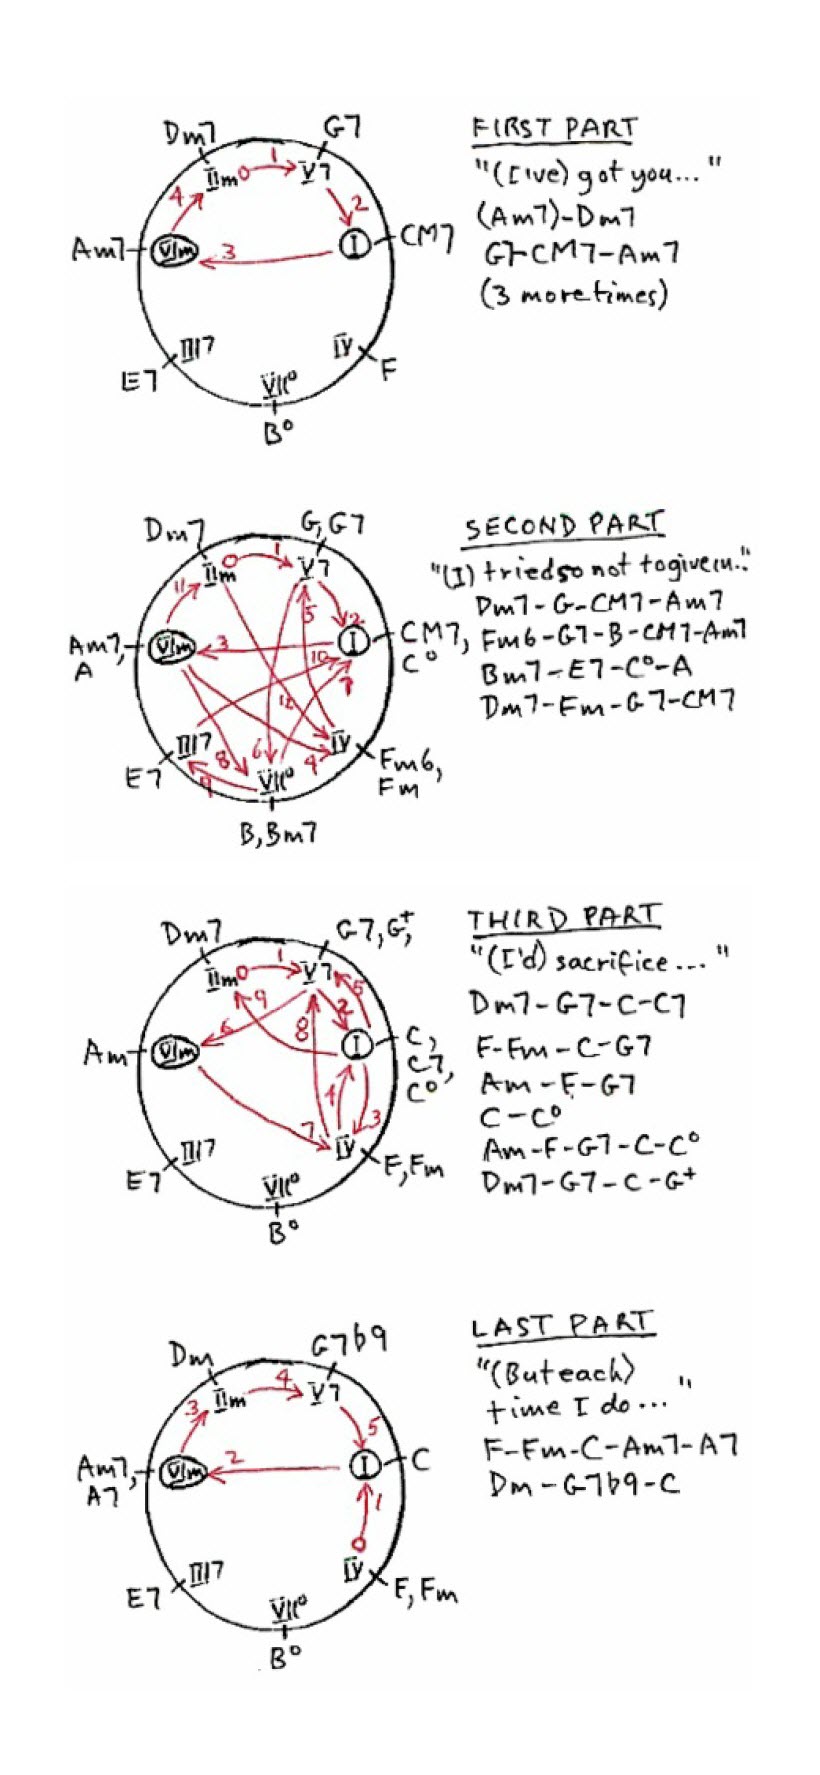 Dm7
G7
1
IIm
V7
4
2
Am7
VIm
3
I
CM7
III7
IV
E7
VII°
F
B°
FIRST PART
"(I've) got you..."
(Am7)-Dm7
G7-CM7-Am7
(3 more times)
Dm7
G, G7
1
IIm
V7
11
5
2
Am7,
A
VIm
3
I
CM7,
C°
10
7
12
III7
IV
E7
8
6
4
9
VII°
Fm6,
Fm
B, Bm7
SECOND PART
"(I) tried so not to give in.."
Dm7-G-CM7-Am7
Fm6-G7-B-CM7-Am7
Bm7-E7-C°-A
Dm7-Fm-G7-CM7
Dm7
G7, G+,
1
IIm
V7
9
5
6
8
2
Am
VIm
I
C,
C7,
C°
4
3
7
III7
IV
E7
VII°
F, Fm
B°
THIRD PART
"(I'd) sacrifice...."
Dm7-G7-C-C7
F-Fm-C-G7
Am-F-G7
C-C°
Am-F-G7-C-C°
Dm7-G7-C-G+
Dm
G7b9
4
IIm
V7
3
5
Am7,
A7
VIm
2
I
C
1
III7
IV
E7
VII°
F, Fm
B°
LAST PART
"(But each)
time I do..."
F-Fm-C-Am7-A7
Dm-G7b9-C